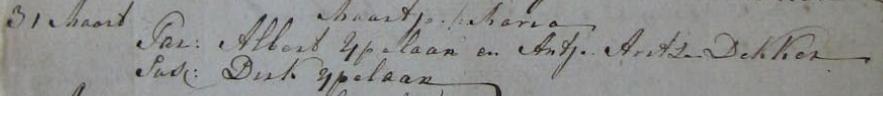 31 Maart Maartje Maria
Par: Albert Ypelaan en Antje Arets Dekker
Sus: Dirk Ypelaan